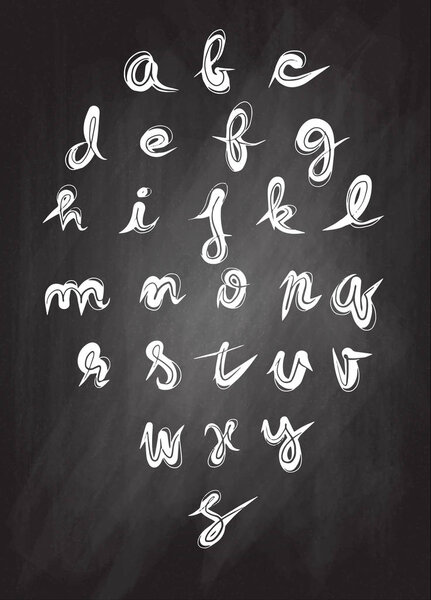 a b c
d e f g
h i j k l
m n o p q
r s t u v
w x y
z